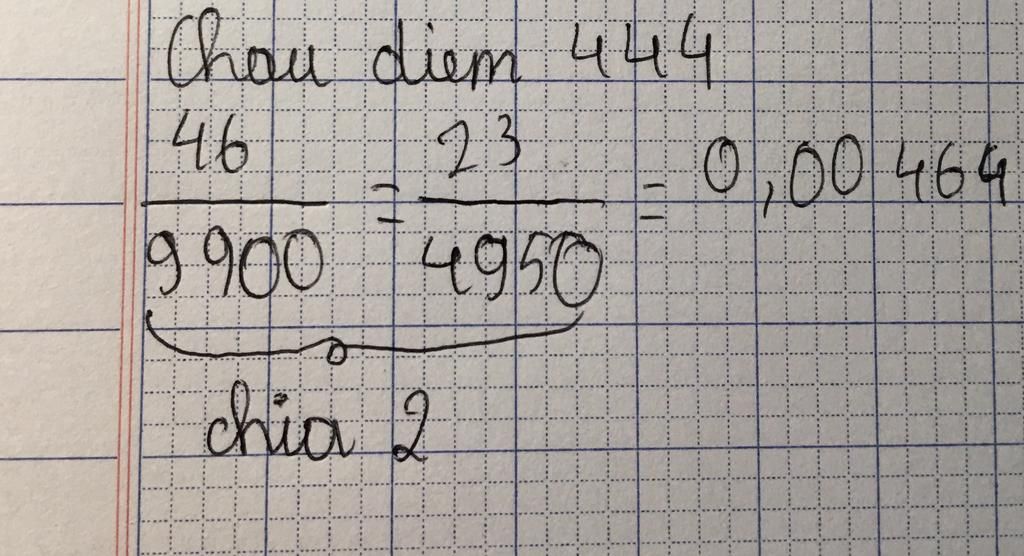 Chau diem 444
46/9900 = 23/4950 = 0,00464
chia 2